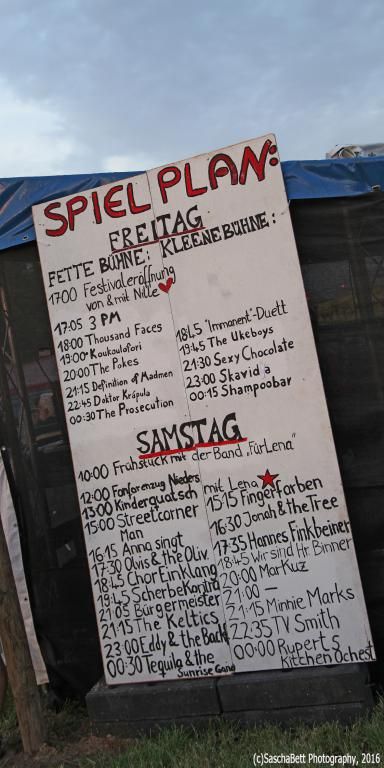 SPIELPLAN:
FREITAG
FETTE BÜHNE:
17:00 Festivaleröffnung
von & mit Nille
17:05 3 PM
18:00 Thousand Faces
19:00 Koukoulofori
20:00 The Pokes
21:15 Definition of Madmen
22:45 Doktor Krápula
00:30 The Prosecution
KLEENE BÜHNE:
18:45 "Immanent"-Duett
19:45 The Ukeboys
21:30 Sexy Chocolate
23:00 Skavida
00:15 Shampoobar
SAMSTAG
10:00 Frühstück mit der Band „FürLena"
12:00 Fanfarenzug Nieders
13:00 Kinderquatsch mit Lena
15:00 Streetcorner
Man
16:15 Anna singt
17:30 Olvis & the Oliv.
18:45 Chor Einklang
19:45 Scherbe Kontra
21:05 Bürgermeister
21:15 The Keltics
23:00 Eddy & the Back
00:30 Tequila & the
Sunrise Gang
15:15 Fingerfarben
16:30 Jonah & the Tree
17:35 Hannes Finkbeiner
18:45 Wir sind Hr. Binner
20:00 Markuz
21:00 —
21:15 Minnie Marks
22:35 TV Smith
00:00 Ruperts
Kitchen Ochest
(c)SaschaBett Photography, 2016